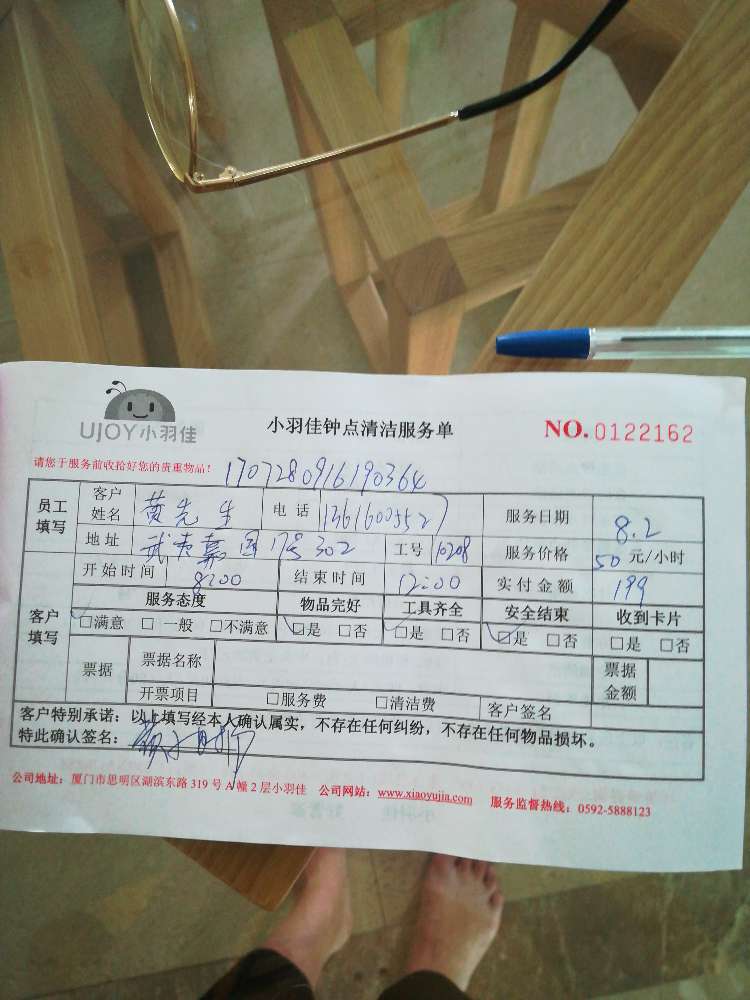 UJOY小羽佳
小羽佳钟点清洁服务单
NO.0122162
请您于服务前收拾好您的贵重物品！
1707280916190364
员工填写 客户姓名 黄先生 电话 13616005527 服务日期 8.2
地址 武夷嘉园17号302 工号 10208 服务价格 50 元/小时
开始时间 8:00 结束时间 12:00 实付金额 199
客户填写 服务态度 物品完好 工具齐全 安全结束 收到卡片
□满意 □一般 □不满意 □是 □否 □是 □否 □是 □否 □是 □否
票据 票据名称 票据金额
开票项目 □服务费 □清洁费 客户签名
客户特别承诺：以上填写经本人确认属实，不存在任何纠纷，不存在任何物品损坏。
特此确认签名：
公司地址：厦门市思明区湖滨东路 319 号 A 幢 2 层小羽佳 公司网站：www.xiaoyujia.com 服务监督热线：0592-5888123